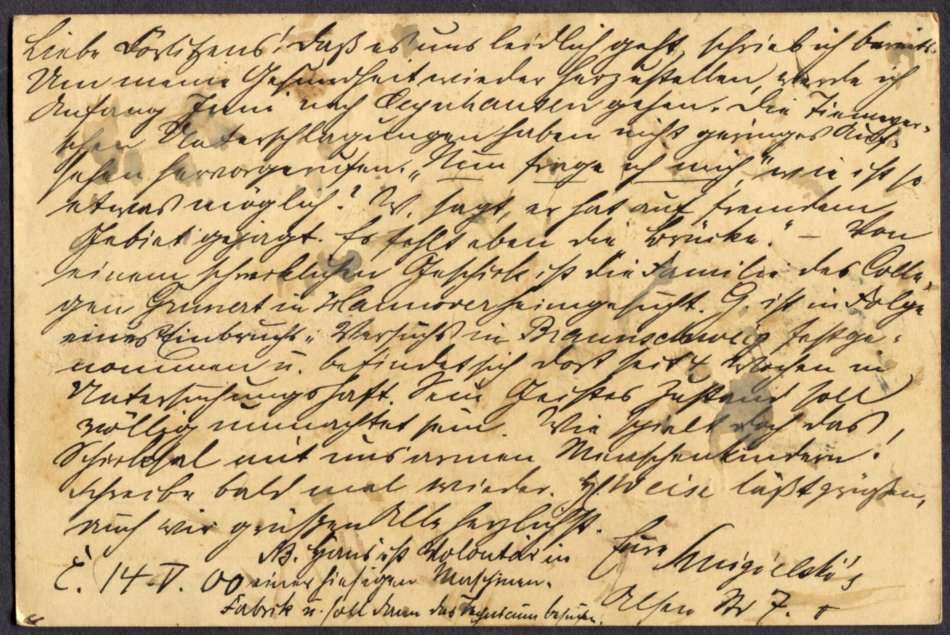 Liebe Försitzens! Daß es uns leidlich geht, schrieb ich bereits.
Um meine Gesundheit wieder herzustellen, werde ich
Anfang Juni nach Oeynhausen gehen. Die Tiemeyer-
schen Unterschlagungen haben nicht geringes Auf-
sehen hervorgerufen. „Nun frage ich mich," wie ist so
etwas möglich? W. sagt, er hat auf fremdem
Gebiet gejagt. Es fehlt eben die „Brücke." – Von
einem schrecklichen Geschick ist die Familie des Colle-
gen Grunert in Hannover heimgesucht. G. ist in Folge
eines Einbruchs-Versuchs in Braunschweig festge-
nommen u. befindet sich dort seit 4 Wochen in
Untersuchungshaft. Sein Geistes Zustand soll
völlig umnachtet sein. Wie spielt doch das
Schicksal mit uns armen Menschenkindern!
Schreibe bald mal wieder. Weise läßt grüßen,
auch wir grüßen Alle herzlichst.
NB. Hans ist Volontär in
Eure
C. 14. V. 00 einer hiesigen Maschinen-
Fabrik u. soll dann das Technicum besuchen.